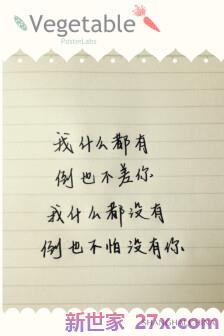 Vegetable
PosterLabs
我什么都有
倒也不差你
我什么都没有
倒也不怕没有你
新世家 27x.com